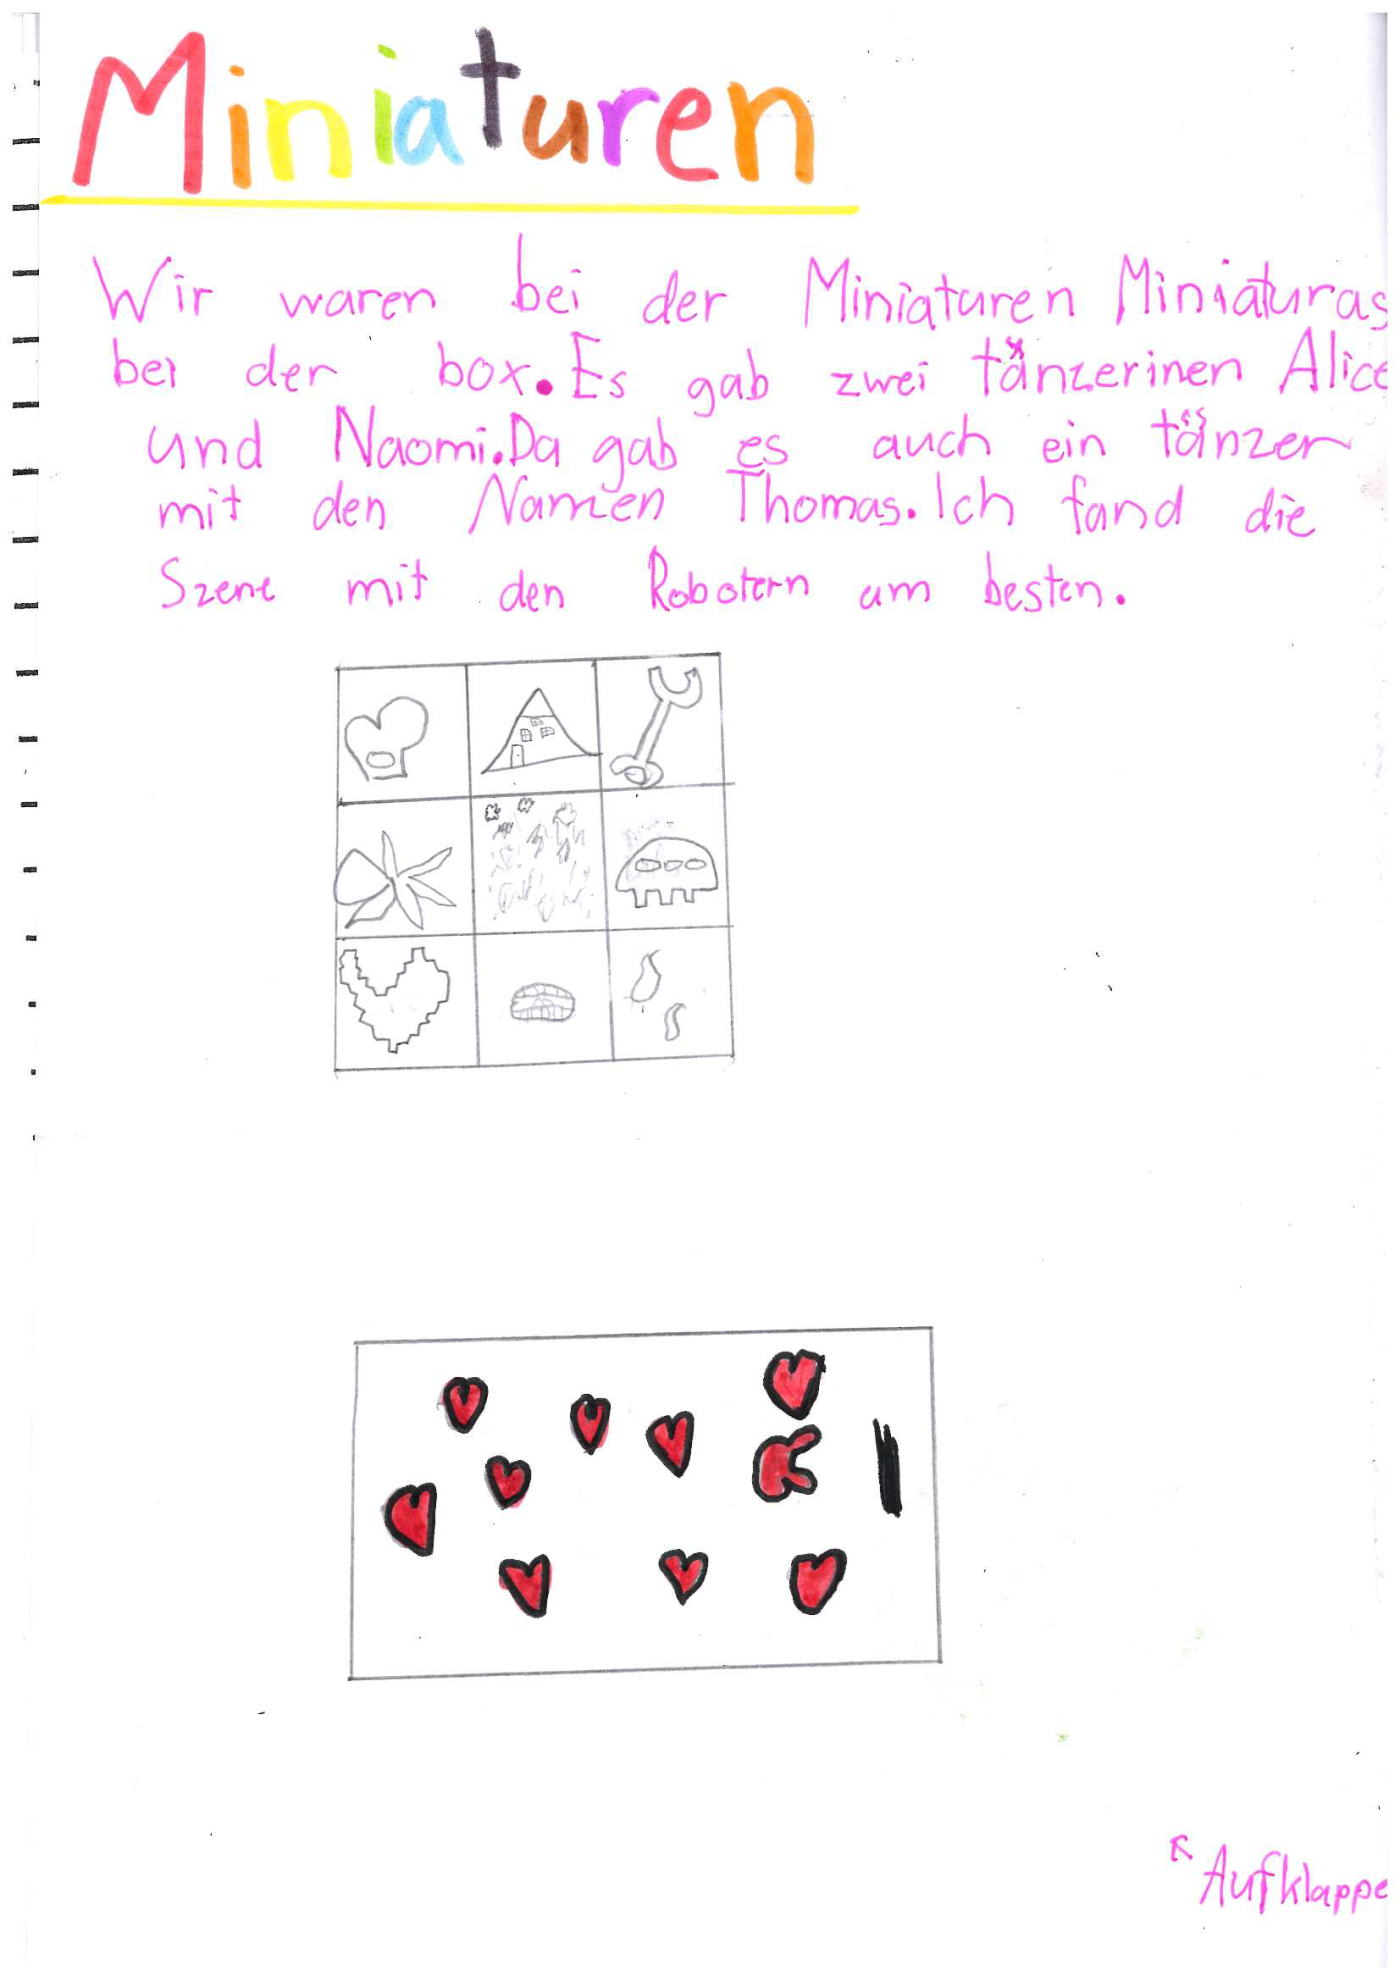 Miniaturen
Wir waren bei der Miniaturen Miniaturas
bei der box. Es gab zwei tänzerinen Alice
und Naomi. Da gab es auch ein tänzer
mit den Namen Thomas. Ich fand die
Szene mit den Robotern am besten.
Aufklappe